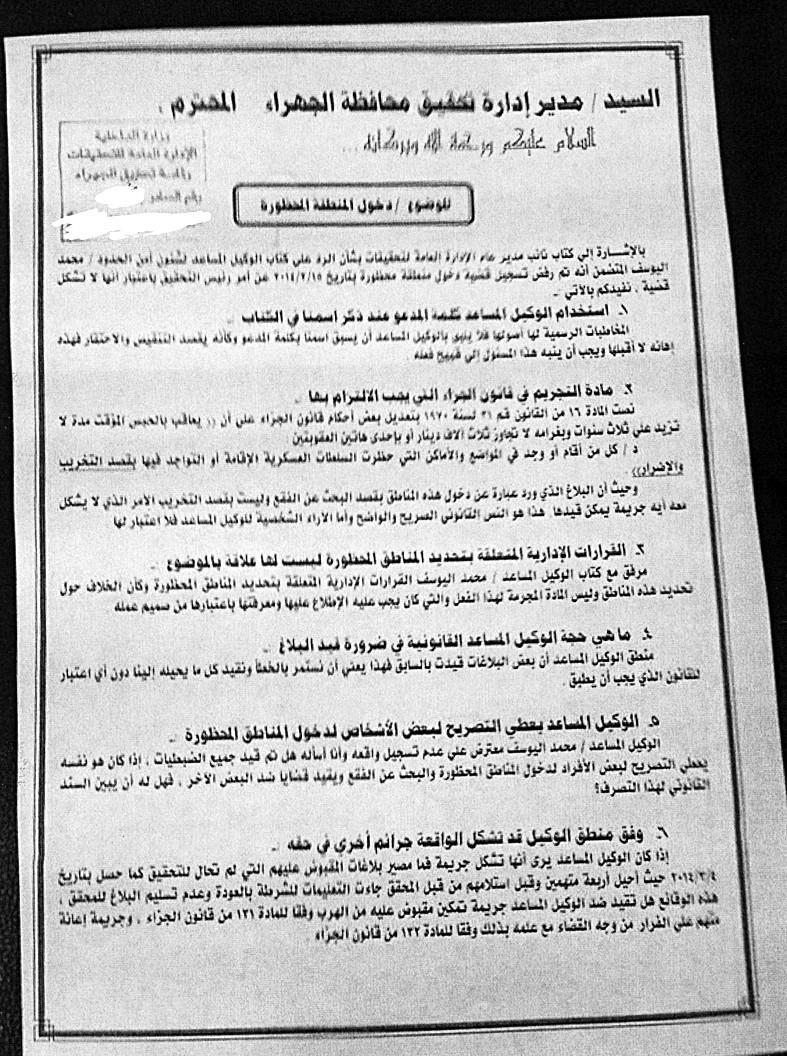 السيد / مدير إدارة تحقيق محافظة الجهراء المحترم ،
السلام عليكم ورحمة الله وبركاته ...
وزارة الداخلية
الإدارة العامة للتحقيقات
رقم الصادر
الموضوع / دخول المنطقة المحظورة
بالإشارة إلي كتاب نائب مدير عام الإدارة العامة لتحقيقات بشأن الرد علي كتاب الوكيل المساعد لشئون أمن الحدود / محمد
اليوسف المتضمن أنه تم رفض تسجيل قضية دخول منطقة محظورة بتاريخ ٢٠١٤/٢/١٥ عن أمر رئيس التحقيق باعتبار أنها لا تشكل
قضية ، نفيدكم بالآتي :-
١. استخدام الوكيل المساعد كلمة المدعو عند ذكر اسمنا في الكتاب :-
المخاطبات الرسمية لها أصولها فلا يليق بالوكيل المساعد أن يسبق اسمنا بكلمة المدعو وكأنه يقصد التنقيص والاحتقار فهذه
إهانه لا أقبلها ويجب أن ينبه هذا المسئول إلي قبيح فعله
٢. مادة التجريم في قانون الجزاء التي يجب الالتزام بها :-
نصت المادة ١٦ من القانون قم ٣١ لسنة ١٩٧٠ بتعديل بعض أحكام قانون الجزاء علي أن (( يعاقب بالحبس المؤقت مدة لا
تزيد علي ثلاث سنوات وبغرامه لا تجاوز ثلاث آلاف دينار أو بإحدى هاتين العقوبتين :
د / كل من أقام أو وجد في المواضع والأماكن التي حظرت السلطات العسكرية الإقامة أو التواجد فيها بقصد التخريب
والإضرار)) .
وحيث أن البلاغ الذي ورد عبارة عن دخول هذه المناطق بقصد البحث عن الفقع وليست بقصد التخريب الأمر الذي لا يشكل
معه أيه جريمة يمكن قيدها. هذا هو النص القانوني الصريح والواضح وأما الآراء الشخصية للوكيل المساعد فلا اعتبار لها
٣. القرارات الإدارية المتعلقة بتحديد المناطق المحظورة ليست لها علاقة بالموضوع :-
مرفق مع كتاب الوكيل المساعد / محمد اليوسف القرارات الإدارية المتعلقة بتحديد المناطق المحظورة وكأن الخلاف حول
تحديد هذه المناطق وليس المادة المجرمة لهذا الفعل والتي كان يجب عليه الإطلاع عليها ومعرفتها باعتبارها من صميم عمله
٤. ما هي حجة الوكيل المساعد القانونية في ضرورة قيد البلاغ :-
منطق الوكيل المساعد أن بعض البلاغات قيدت بالسابق فهذا يعني أن نستمر بالخطأ ونقيد كل ما يحيله إلينا دون أي اعتبار
للقانون الذي يجب أن يطبق .
٥. الوكيل المساعد يعطي التصريح لبعض الأشخاص لدخول المناطق المحظورة :-
الوكيل المساعد / محمد اليوسف معترض علي عدم تسجيل واقعه وأنا أسأله هل تم قيد جميع الضبطيات ، إذا كان هو نفسه
يعطي التصريح لبعض الأفراد لدخول المناطق المحظورة والبحث عن الفقع ويقيد قضايا ضد البعض الآخر ، فهل له أن يبين السند
القانوني لهذا التصرف؟
٦. وفق منطق الوكيل قد تشكل الواقعة جرائم أخري في حقه :-
إذا كان الوكيل المساعد يرى أنها تشكل جريمة فما مصير بلاغات المقبوض عليهم التي لم تحال للتحقيق كما حصل بتاريخ
٢٠١٤/٣/٤ حيث أحيل أربعة متهمين وقبل استلامهم من قبل المحقق جاءت التعليمات للشرطة بالعودة وعدم تسليم البلاغ للمحقق ،
هذه الوقائع هل تقيد ضد الوكيل المساعد جريمة تمكين مقبوض عليه من الهرب وفقا للمادة ١٣١ من قانون الجزاء ، وجريمة إعانة
متهم علي الفرار من وجه القضاء مع علمه بذلك وفقا للمادة ١٣٢ من قانون الجزاء .